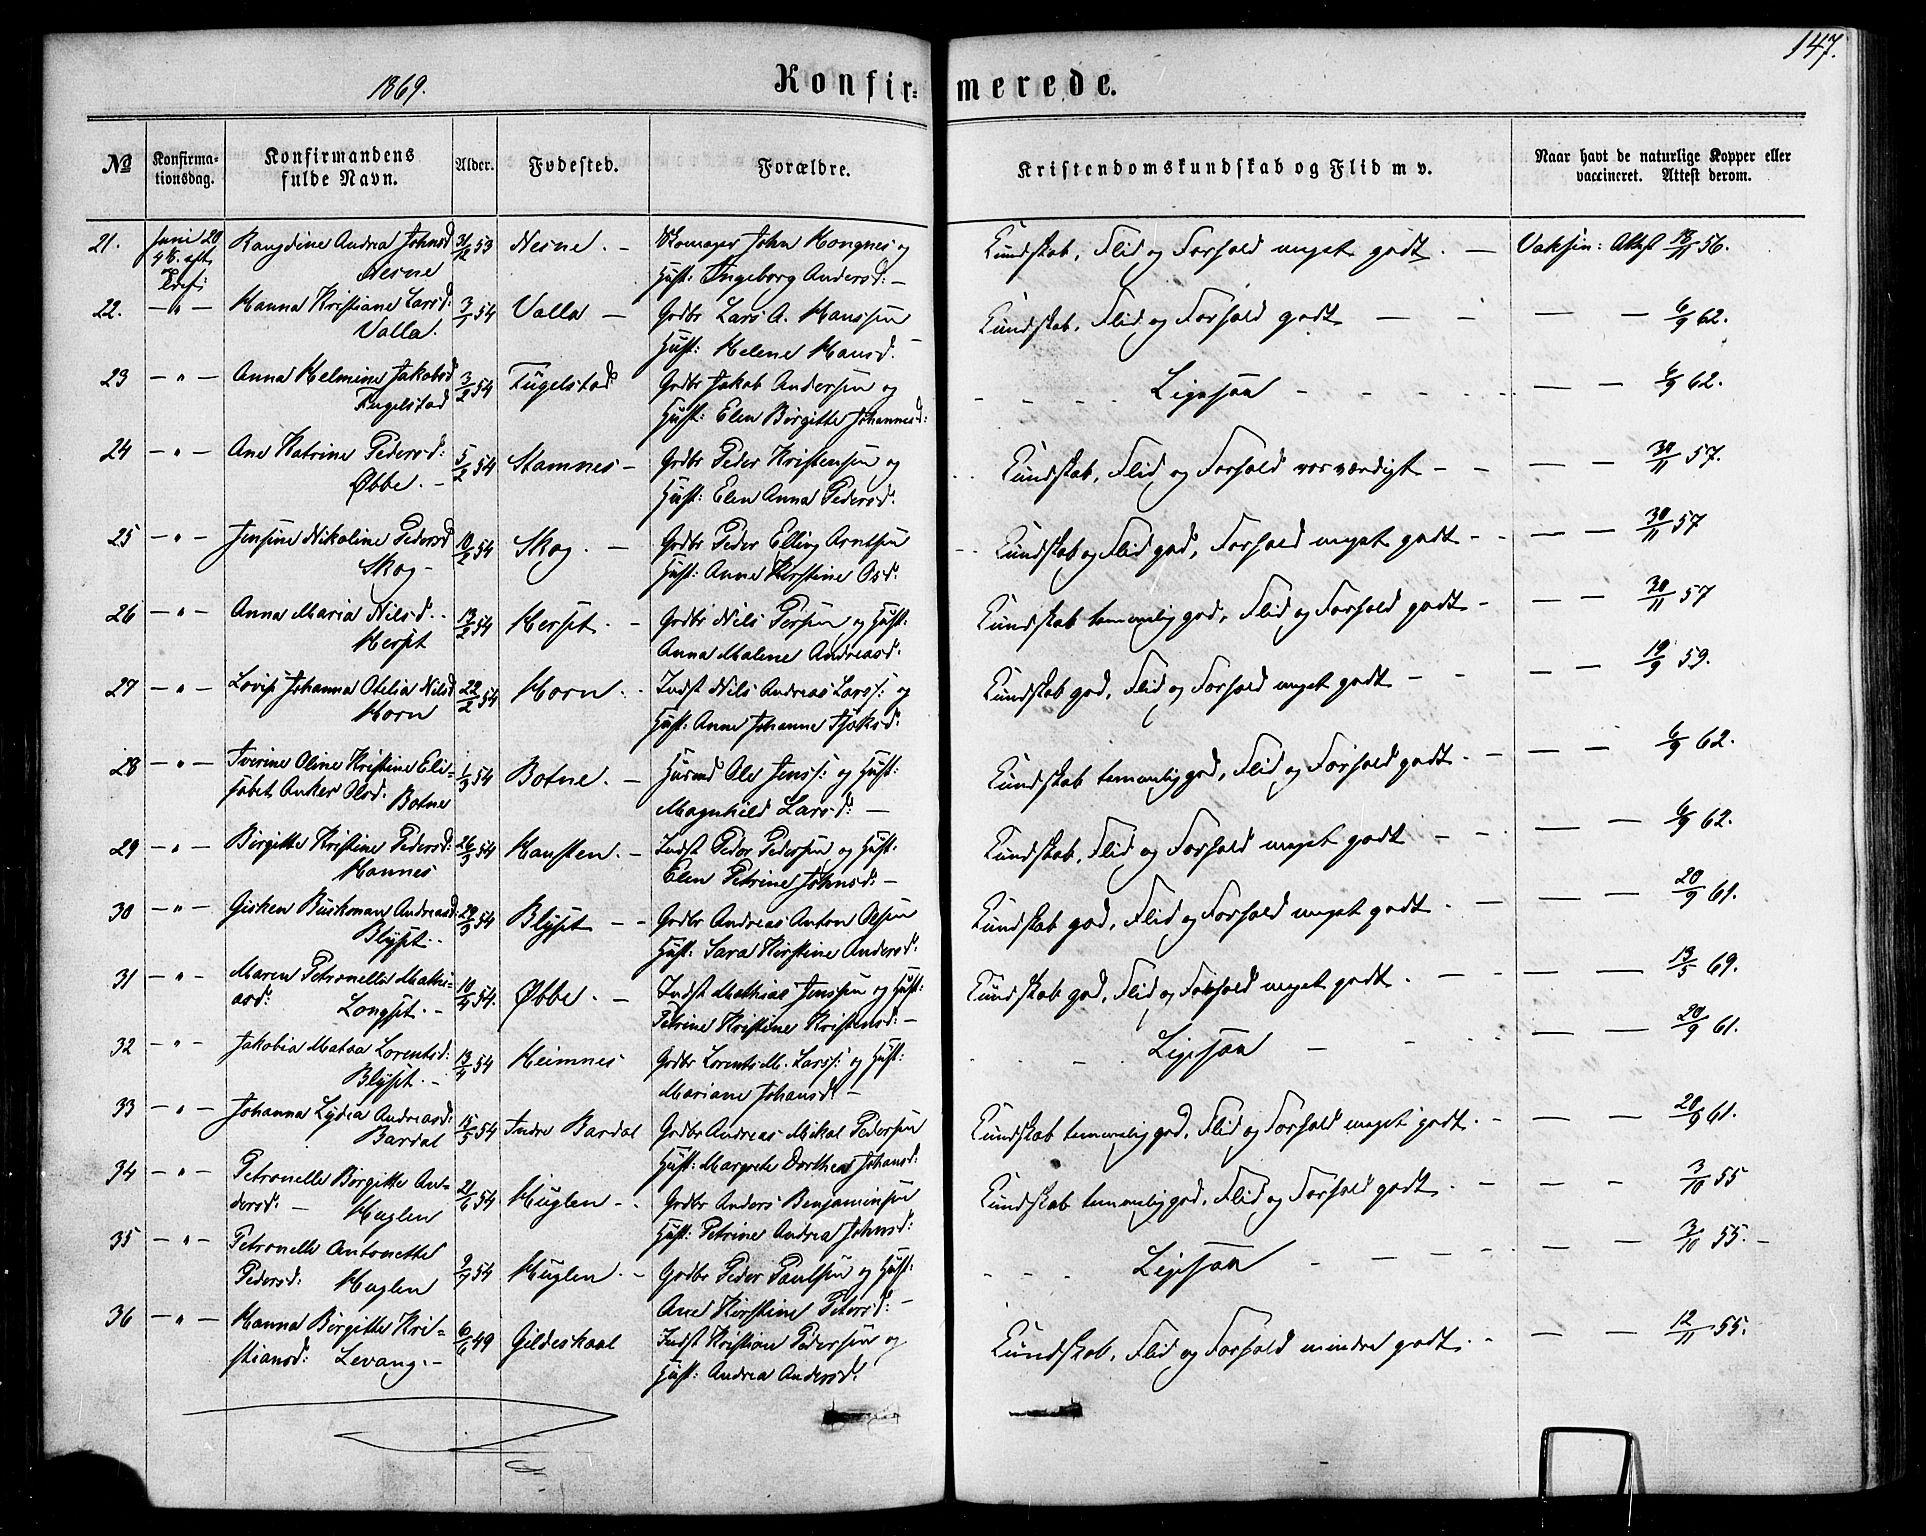 147.
1869.
Konfir= merede.
No
Konfirma-
tionsdag.
Konfirmandens
fulde Navn.
Alder.
Fødested.
Forældre.
Kristendomskundskab og Flid m v.
Naar havt de naturlige Kopper eller
vaccineret. Attest derom.
21. Juni 20 Andrea Johnsd 53 Nesne. — John Kongnes og Kundskab, Flid og Forhold meget godt. — Vaksin: Attest 56.
Nesne Hust: Ingeborg Andersd: —
22. — " — Hanna Kristiane Larsd: 3/1 54 Valla — Grdbr Lars A. Hanssen Kundskab, Flid og Forhold godt — — — — 6/9 62.
Valla. Hust: Helene Hansd. —
23 — " — Anna Helmine Jakobsd 3/2 54 Fugelstad Grdbr Jakob Andersen og Ligesaa — — — — 6/9 62.
Fugelstad Hust: Elen Birgitte Johannesd:
24 — " — Ane Katrine Pedersd: 5/2 54 Stamnes — Grdbr Peder Kristensen og Kundskab, Flid og Forhold — — — — 30/11 57.
Øbbe. — Hust: Elen Anna Pedersd:
25 — " — Jensine Nikoline Pedersd 10/2 54 Skog. — Grdbr Peder Elling Arntsen Kundskab og Flid god, Forhold meget godt — — — — 30/11 57
Skog — Hust: Anne Kirstine Osd:
26 — " — Anna Maria Nilsd. 13/2 54 Herset. — Grdbr Nils Persen og Hust: Kundskab temmelig god, Flid og Forhold godt — — — 30/11 57
Herset Anna Malene Andreasd:
27 — " — Lovise Johanna Otelia Nilsd 22/2 54 Horn. Indst Nils Andreas Larss: og Kundskab god, Flid og Forhold meget godt — — — — 19/9 59.
Horn Hust: Anne Johanne
28 — " — Oline Kristine Eli- 1/3 54 Botne. — Husmd Ole Jenss: og Hust: Kundskab temmelig god, Flid og Forhold godt. — — — 6/9 62.
sabet Anker Olsd. Botne Magnhild Larsd: —
29 — " — Birgitte Kristine Pedersd: 26/3 54 Hausten. — Indst Peder Pedersen og Hust: Kundskab, Flid og Forhold meget godt — — — — 6/9 62.
Hannes Elen Petrine Johnsd: —
30 — " — Gisken Andreasd: 29/3 54 Blyset — — Grdbr Andreas Anton Olsen Kundskab god, Flid og Forhold meget godt. — — — 20/9 61.
Blyset. Hust: Sara Kirstine Andersd:
31 — " — Maren Petronelle Mathi- 10/4 54. Øbbe. — Indst Mathias Jenssen og Hust: Kundskab god, Flid og Forhold meget godt. — — — 13/5 69.
asd: Longset. — Petrine Kristine Kristensd: —
32 — " — Jakobia Matea Lorentsd: 13/4 54 Heimnes Grdbr Lorents M. Larss: og Hust: Ligesaa — — — — 20/9 61.
Blyset. — Mariane Johansd: —
33 — " — Johanna Lydia Andreasd: 15/5 54 Indre Bardal Grdbr Andreas Mikal Pedersen Kundskab temmelig god, Flid og Forhold meget godt. — — — 20/9 61.
Bardal Hust: Margrete Dorthea Johansd:
34 — " — Petronelle Birgitte An- 21/6 54 Huglen — Grdbr Anders Benjaminsen Kundskab temmelig god, Flid og Forhold godt. — — — — 3/10 55
dersd: — Huglen Hust: Petrine Andrea Johnsd:
35 — " — Petronelle Antonette 9/7 54 Huglen. — Grdbr Peder Paulsen og Hust: Ligesaa — — — — — 3/10 55. —
Pedersd: Huglen Ane Kirstine Petersd: —
36 Hanna Birgitte Kri- 6/6 49 Gildeskaal Indst Kristian Pedersen og Kundskab, Flid og Forhold mindre godt. — — — 12/11 55.
stiansd: Levang. — Hust: Andrea Andersd: